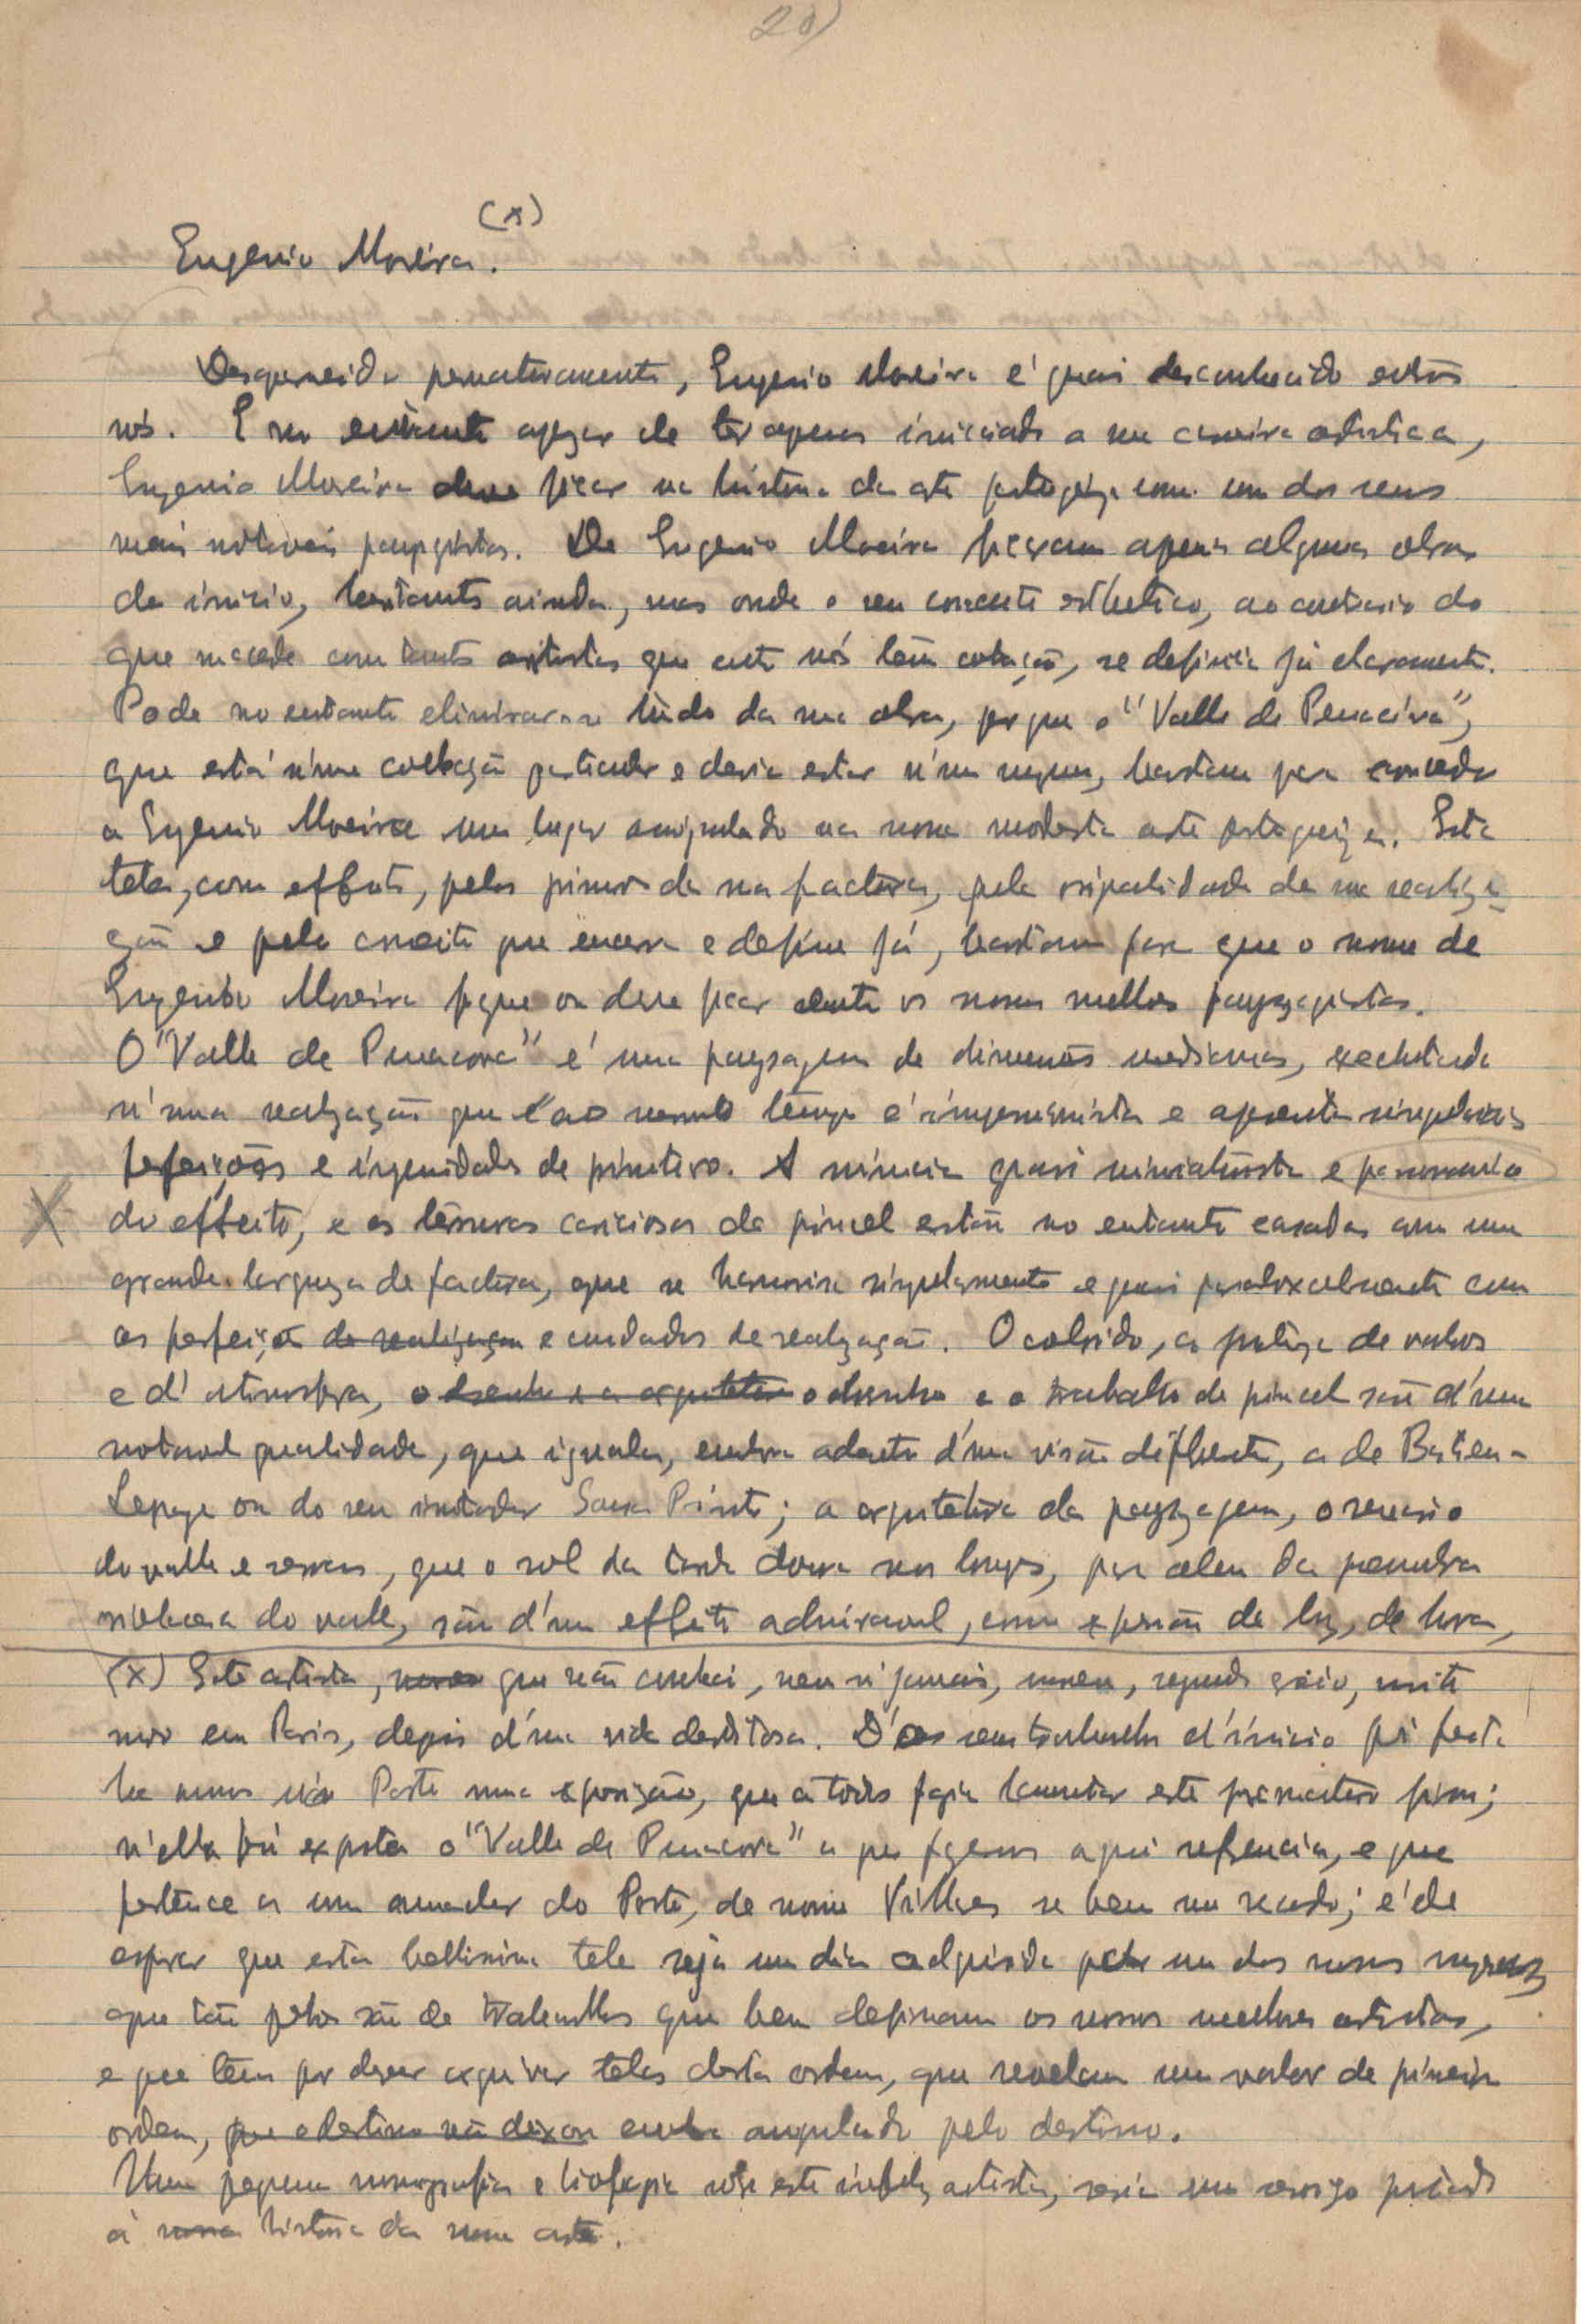 20)
(x)
Eugenio Moreira.
Desaparecido prematuramente, Eugenio Moreira é quasi desconhecido entre
nós. E no entanto apezar de ter apenas iniciado a sua carreira artistica,
Eugenio Moreira deve ficar na historia da arte portugueza como um dos seus
mais notaveis paysagistas. De Eugenio Moreira ficaram apenas algumas obras
de inicio, hesitantes ainda, mas onde o seu conceito esthetico, ao contrario do
que succede com tantos artistas que entre nós têm cotação, se definia já claramente.
Pode no entanto eliminar-se tudo da sua obra, porque o "Valle de Penacova",
que está n'uma collecção particular e devia estar n'um museu, bastava para conceder
a Eugenio Moreira um lugar assignalado na nossa modesta arte portugueza. Esta
tela, com effeito, pelos primores da sua factura, pela originalidade da sua realiza-
ção e pelo conceito que encerra e define já, bastaria para que o nome de
Eugenio Moreira fique ou deva ficar entre os nossos melhores paysagistas.
O "Valle de Penacova" é uma paysagem de dimensões medianas, executada
n'uma realização que ao mesmo tempo é impressionista e apresenta singulares
perfeições e ingenuidades de primitivo. A minucia quasi miniaturista e panoramica
do effeito, e as ternuras cariciosas do pincel estão no entanto casadas com uma
grande largueza de factura, que se harmonisa singularmente e quasi paradoxalmente com
as perfeição da realização e cuidados de realização. O colorido, a justeza de valores
e d'atmosfera, o desenho e a arquitetura o desenho e o trabalho de pincel são d'uma
notavel qualidade, que iguala, embora adentro d'uma visão differente, a de Bastien-
Lepage ou do seu imitador Sousa Pinto; a arquitetura da paysagem, o scenario
do valle e serras, que o sol da tarde doura nos longes, para alem da penumbra
violacea do valle, são d'um effeito admiravel, como expressão de luz, de hora,
(x) Este artista, que não conheci, nem vi jamais, morreu, segundo creio, muito
novo em Paris, depois d'uma vida desditosa. D'os seus trabalhos d'inicio foi feita
ha annos no Porto uma exposição, que a todos fazia lamentar este prematuro fim;
n'ella foi exposta o "Valle de Penacova" a que fizemos aqui referencia, e que
pertence a um amador do Porto, de nome Vilhares se bem me recordo; é de
esperar que esta bellissima tela seja um dia adquirida por um dos nossos museus
que tão pobres são de trabalhos que bem definam os nossos melhores artistas,
e que têm por dever arquivar telas desta ordem, que revelam um valor de primeira
ordem, que o destino não deixou embora anulado pelo destino.
Uma pequena monografia e biografia sobre este infeliz artista, seria um serviço prestado
á nossa historia da nossa arte.